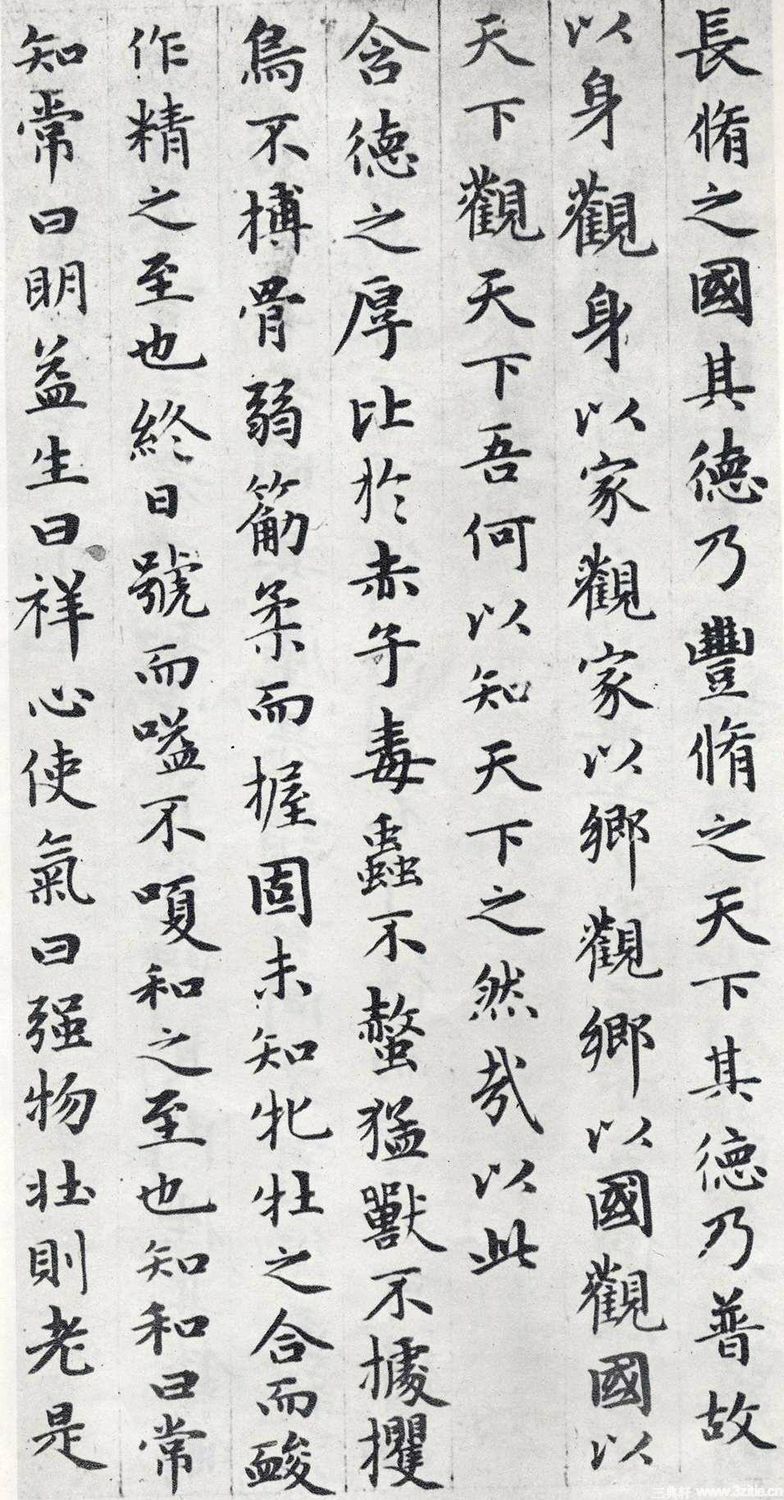 長脩之國其德乃豐脩之天下其德乃普故
以身觀身以家觀家以鄉觀鄉以國觀國以
天下觀天下吾何以知天下之然哉以此
含德之厚比於赤子毒蟲不螫猛獸不據攫
鳥不搏骨弱筋柔而握固未知牝牡之合而䘒
作精之至也終日號而嗌不嗄和之至也知和曰常
知常曰明益生曰祥心使氣曰强物壯則老是
www.3zitie.cn